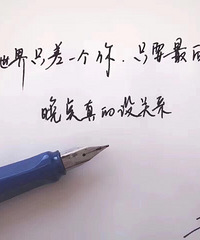 世界只差一个你.只要最后
晚点真的没关系